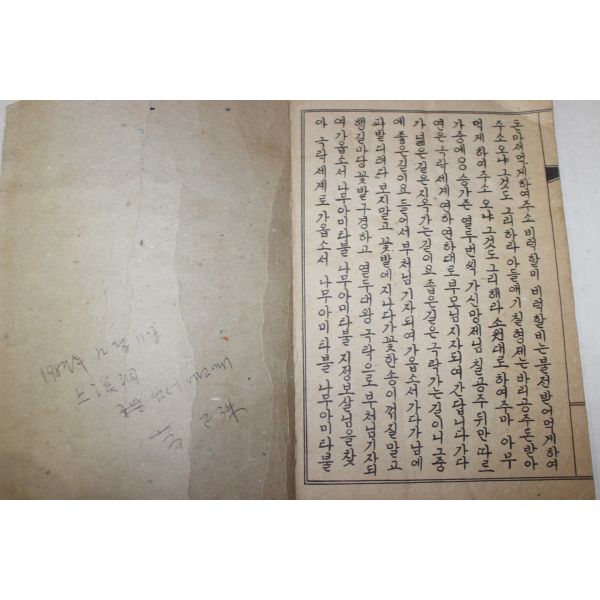 돈마셔먹게하여주소 비럭할미 비럭할비는불전받어먹게하여
주소 오냐 그것도 그리하라 아들애기 칠형제는 바리공주돈받아
먹게 하여주소 오냐 그것도 그리해라 소원대로 하여주마 아무
가중에 열두번씩 가신망제님 칠공주 뒤만 따르
면은 극락세계 연하연화대로 부모님기자되여 간답니다 가다
가 넓은길은 지옥가는길이요 좁은길은 극락가는길이니 그중
에 좁은길이요 들어서 부처님 기자되여 가옵소서 가다가 남에
파밭 다려다 보지말고 꽃밭에 지나다가 꽃한송이 꺾질말고
행길마당 꽃밭구경하고 열두대왕 극락으로 부처님기자되
여 가옵소서 나무아미타불 나무아미타불 지정보살님을 찾
아 극락세계로 가옵소서 나무아미타불 나무아미타불